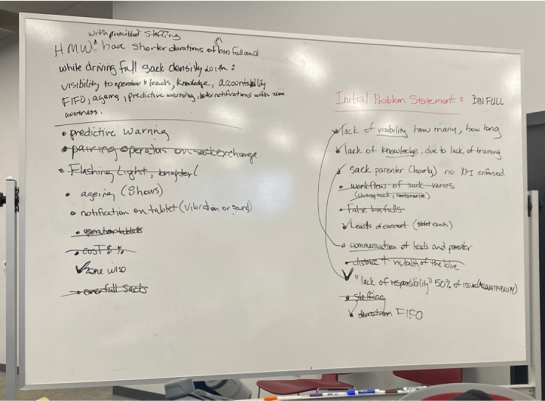 with permitted staffing
HMW ^ have shorter durations of bin full and
while driving full sack density with:
visibility to operator & leads, knowledge, accountability
FIFO, ageing, predictive warning, notifications with zone
awareness.
• predictive warning
• pairing operator on sack exchange
• Flashing light, brighter (
• ageing (Shows)
• notification on tablet (vibration or sound)
• operator tablets
• cost & %
✓ zone wise
• overfull sacks
Initial Problem Statement: BIN FULL
lack of visibility how many, how long
lack of knowledge, due to lack of training
sack parenter (hourly) no KPI enforced
• workflow of sack varies
• False bin fulls
(tablet counts)
• communication of leads and parenter
• distance + of the
✓ "lack of responsibility" 50% of issue (ACCOUNTABILITY)
• staffing
downstream FIFO